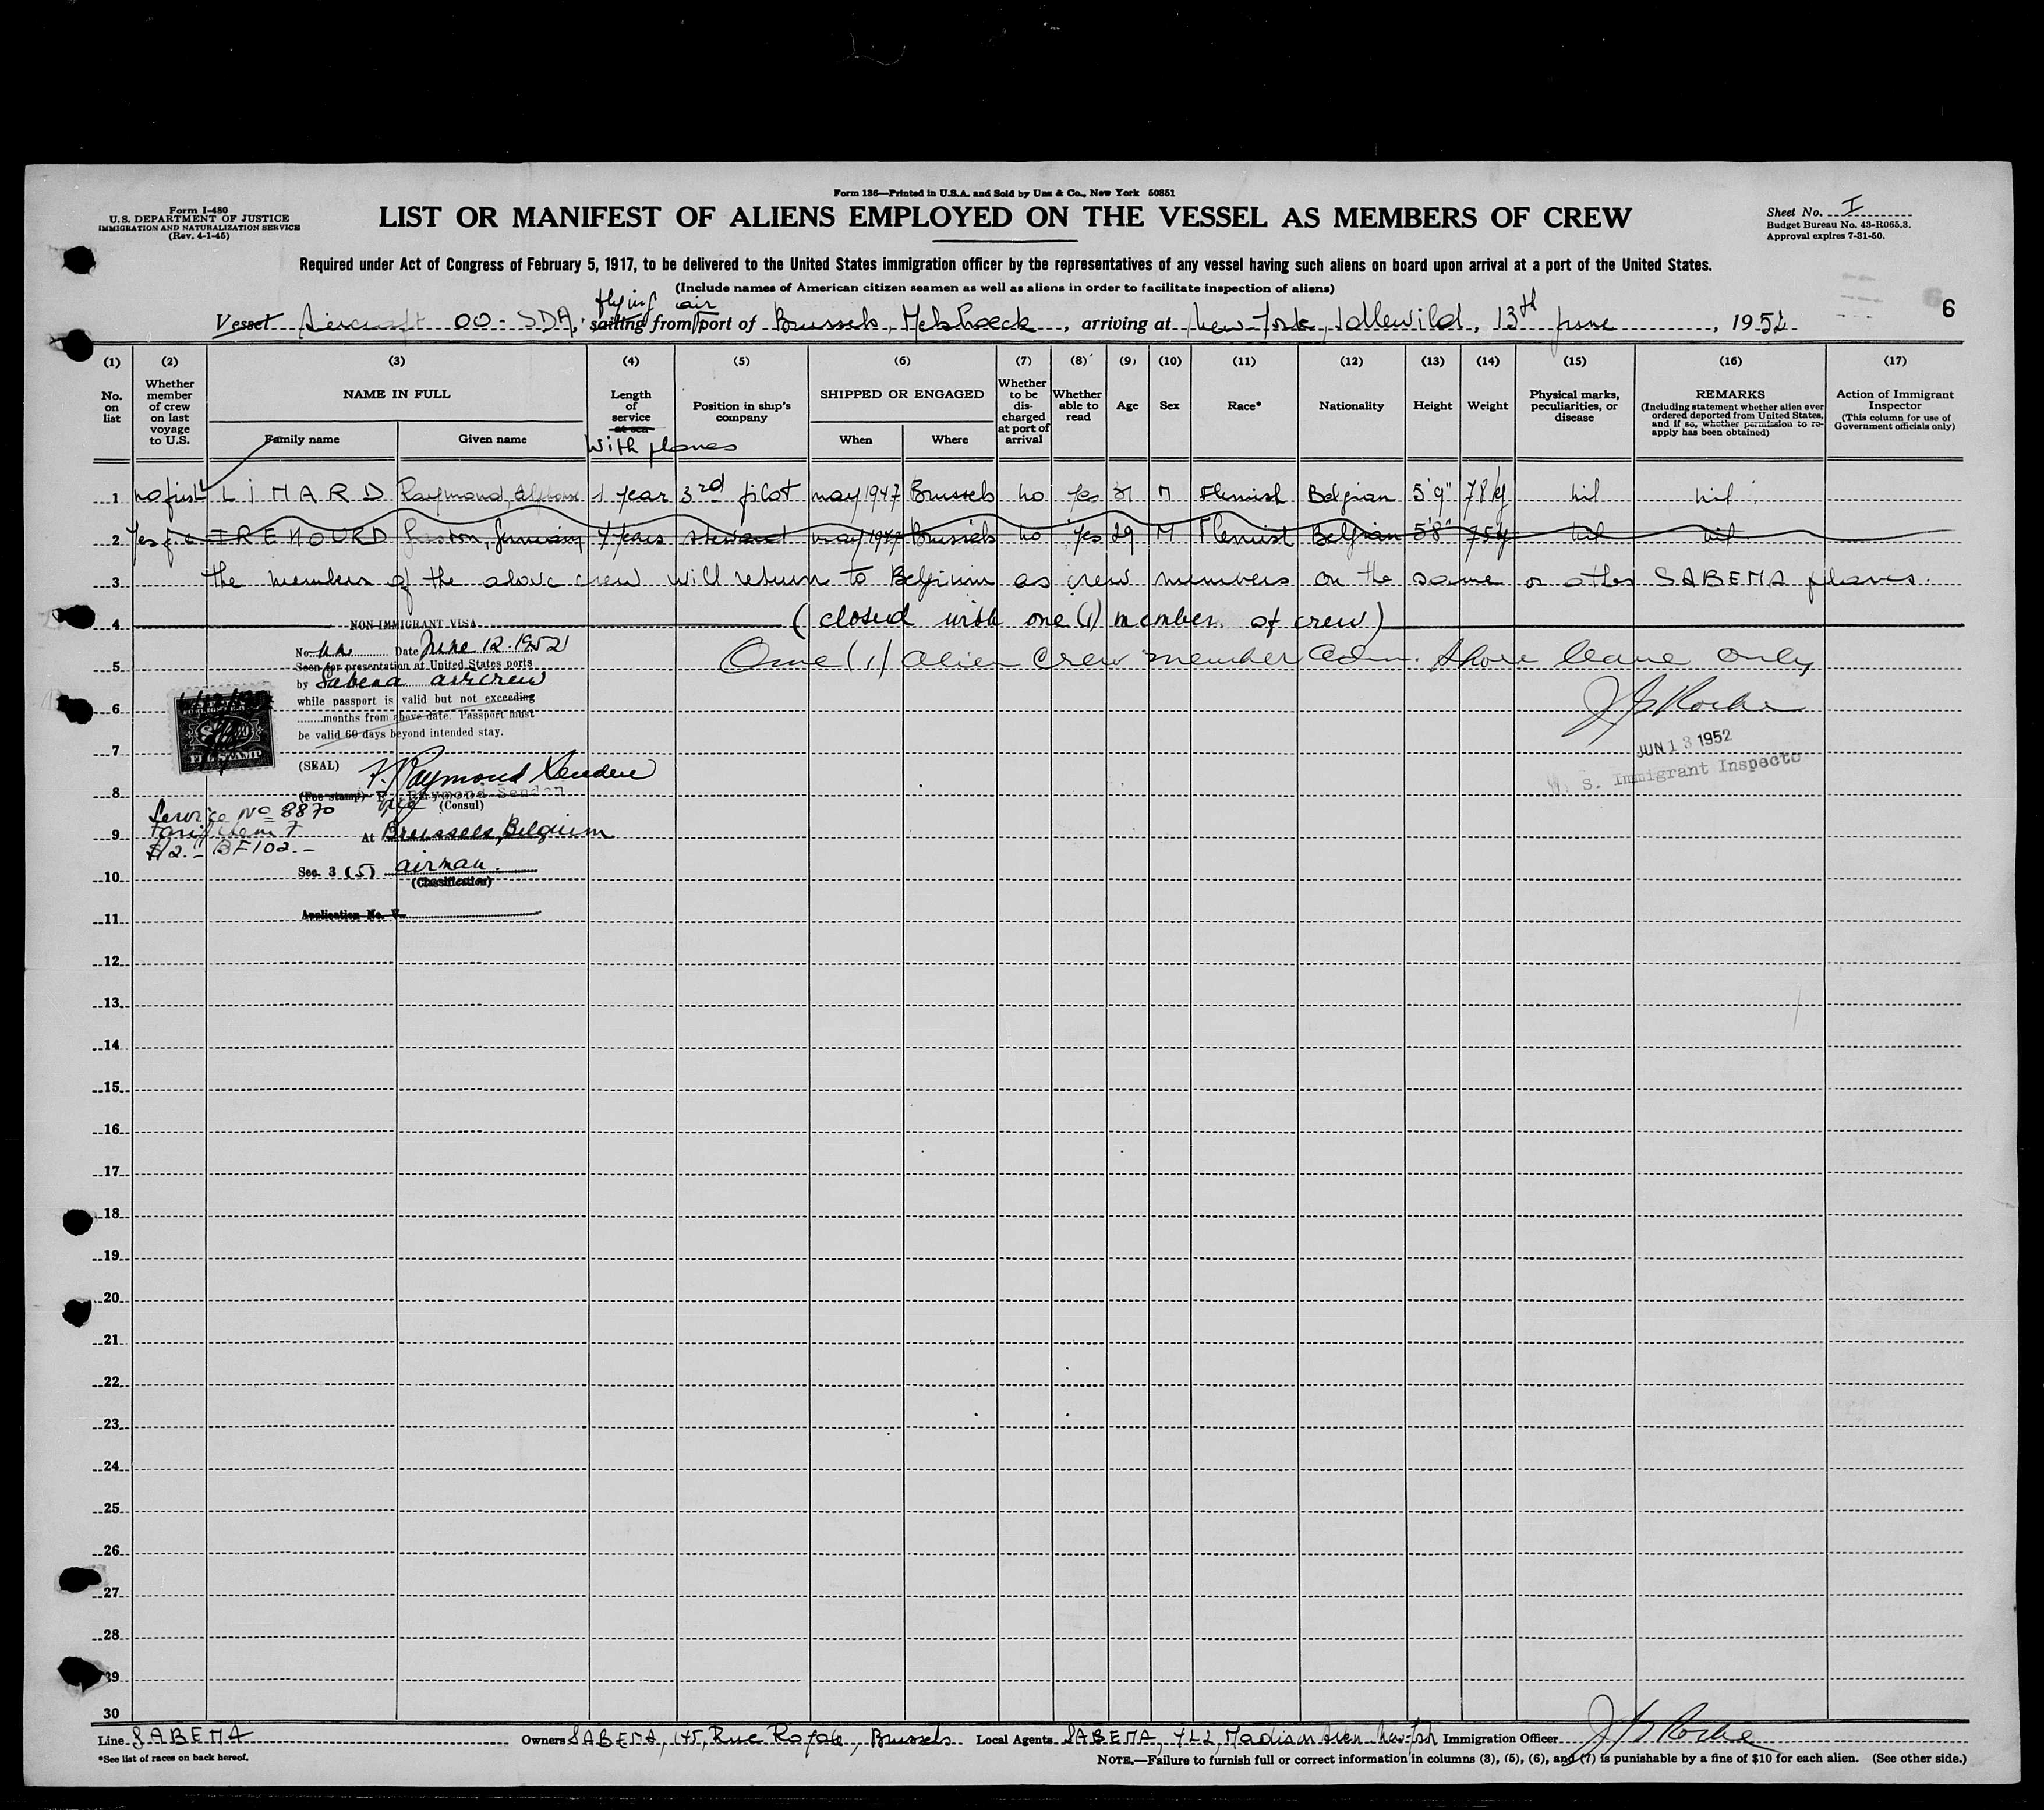 Form 136—Printed in U.S.A. and Sold by Unz & Co., New York 50851
Form I-480
U.S. DEPARTMENT OF JUSTICE
IMMIGRATION AND NATURALIZATION SERVICE
(Rev. 4-1-45)
LIST OR MANIFEST OF ALIENS EMPLOYED ON THE VESSEL AS MEMBERS OF CREW
Sheet No. I
Budget Bureau No. 43-R065.3.
Approval expires 7-31-50.
Required under Act of Congress of February 5, 1917, to be delivered to the United States immigration officer by the representatives of any vessel having such aliens on board upon arrival at a port of the United States.
(Include names of American citizen seamen as well as aliens in order to facilitate inspection of aliens)
6
flying air
Vessel Aircraft OO-SDA, sailing from port of Brussels, Melsbroeck, arriving at New-York, Idlewild, 13th june, 1952
(1) (2) (3) (4) (5) (6) (7) (8) (9) (10) (11) (12) (13) (14) (15) (16) (17)
No. on list
Whether member of crew on last voyage to U.S.
NAME IN FULL
Family name
Given name
Length of service at sea
With planes
Position in ship's company
SHIPPED OR ENGAGED
When
Where
Whether to be discharged at port of arrival
Whether able to read
Age
Sex
Race*
Nationality
Height
Weight
Physical marks, peculiarities, or disease
REMARKS
(Including statement whether alien ever ordered deported from United States, and if so, whether permission to reapply has been obtained)
Action of Immigrant Inspector
(This column for use of Government officials only)
1 no first LIMARD Raymond, 1 year 3rd pilot may 1947 Brussels no yes M Flemish Belgian 5'9" 78 kg nil nil
2 Yes steward may 1947 Brussels no Yes 29 M Flemish Belgian 5'8" 75 kg nil nil
3 the members of the above crew will return to Belgium as crew members on the same or other SABENA planes.
4 (closed with one (1) member of crew)
NON-IMMIGRANT VISA
No. Date June 12. 1952
Seen for presentation at United States ports
by Sabena aircrew
while passport is valid but not exceeding
months from above date. Passport must
be valid 60 days beyond intended stay.
5 One (1) alien crew member adm. shore leave only
6
FEE STAMP
JUN 13 1952
U. S. Immigrant Inspector
7
(SEAL) F. Raymond Senden
8
(Fee stamp) F. Raymond Senden
(Consul)
Service No 8870
Tariff item 7
$2.- BF102.-
9
At Brussels, Belgium
10
Sec. 3 (5) airman.
(Classification)
11
Application No. V
12
13
14
15
16
17
18
19
20
21
22
23
24
25
26
27
28
29
30
Line SABENA Owners SABENA, 145, Rue Royale, Brussels Local Agents SABENA, 422, Madison Aven New-York Immigration Officer
*See list of races on back hereof.
NOTE.—Failure to furnish full or correct information in columns (3), (5), (6), and (7) is punishable by a fine of $10 for each alien. (See other side.)